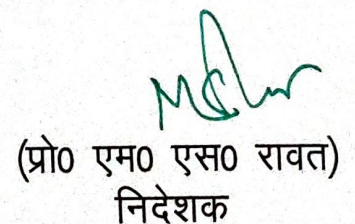 (प्रो0 एम0 एस0 रावत)
निदेशक